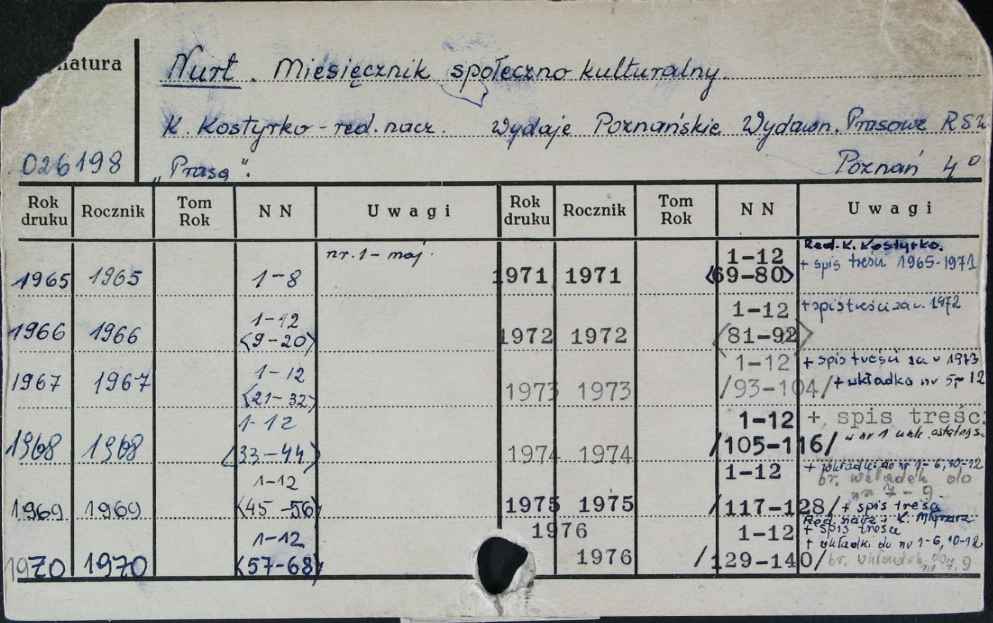 Nurt. Miesięcznik społeczno kulturalny.
K. Kostyrko - red. nacz. Wydaje Poznańskie Wydawn. Prasowe RSW
026198 "Prasa". Poznań 4°
Rok druku Rocznik Tom Rok NN Uwagi Rok druku Rocznik Tom Rok NN Uwagi
1965 1965 1-8 nr. 1 - maj
1966 1966 1-12 <9-20>
1967 1967 1-12 <21-32>
1968 1968 1-12 <33-44>
1969 1969 1-12 <45-56>
1970 1970 1-12 <57-68>
1971 1971 1-12 <69-80> Red. K. Kostyrko. + spis treści 1965-1971
1972 1972 1-12 <81-92> + spis treści za r. 1972
1973 1973 1-12 /93-104/ + spis treści za r 1973 + wkładka nr 5, 12
1974 1974 1-12 /105-116/ + spis treści w nr 1
1975 1975 1-12 /117-128/ + wkładki do nr 1-6, 10-12 br. wkładek do nr 7-9. + spis treści
1976 1976 1-12 /129-140/ Red. nacz.: K. Młynarz + spis treści + wkładki do nr 1-6, 10-12 br. wkładek